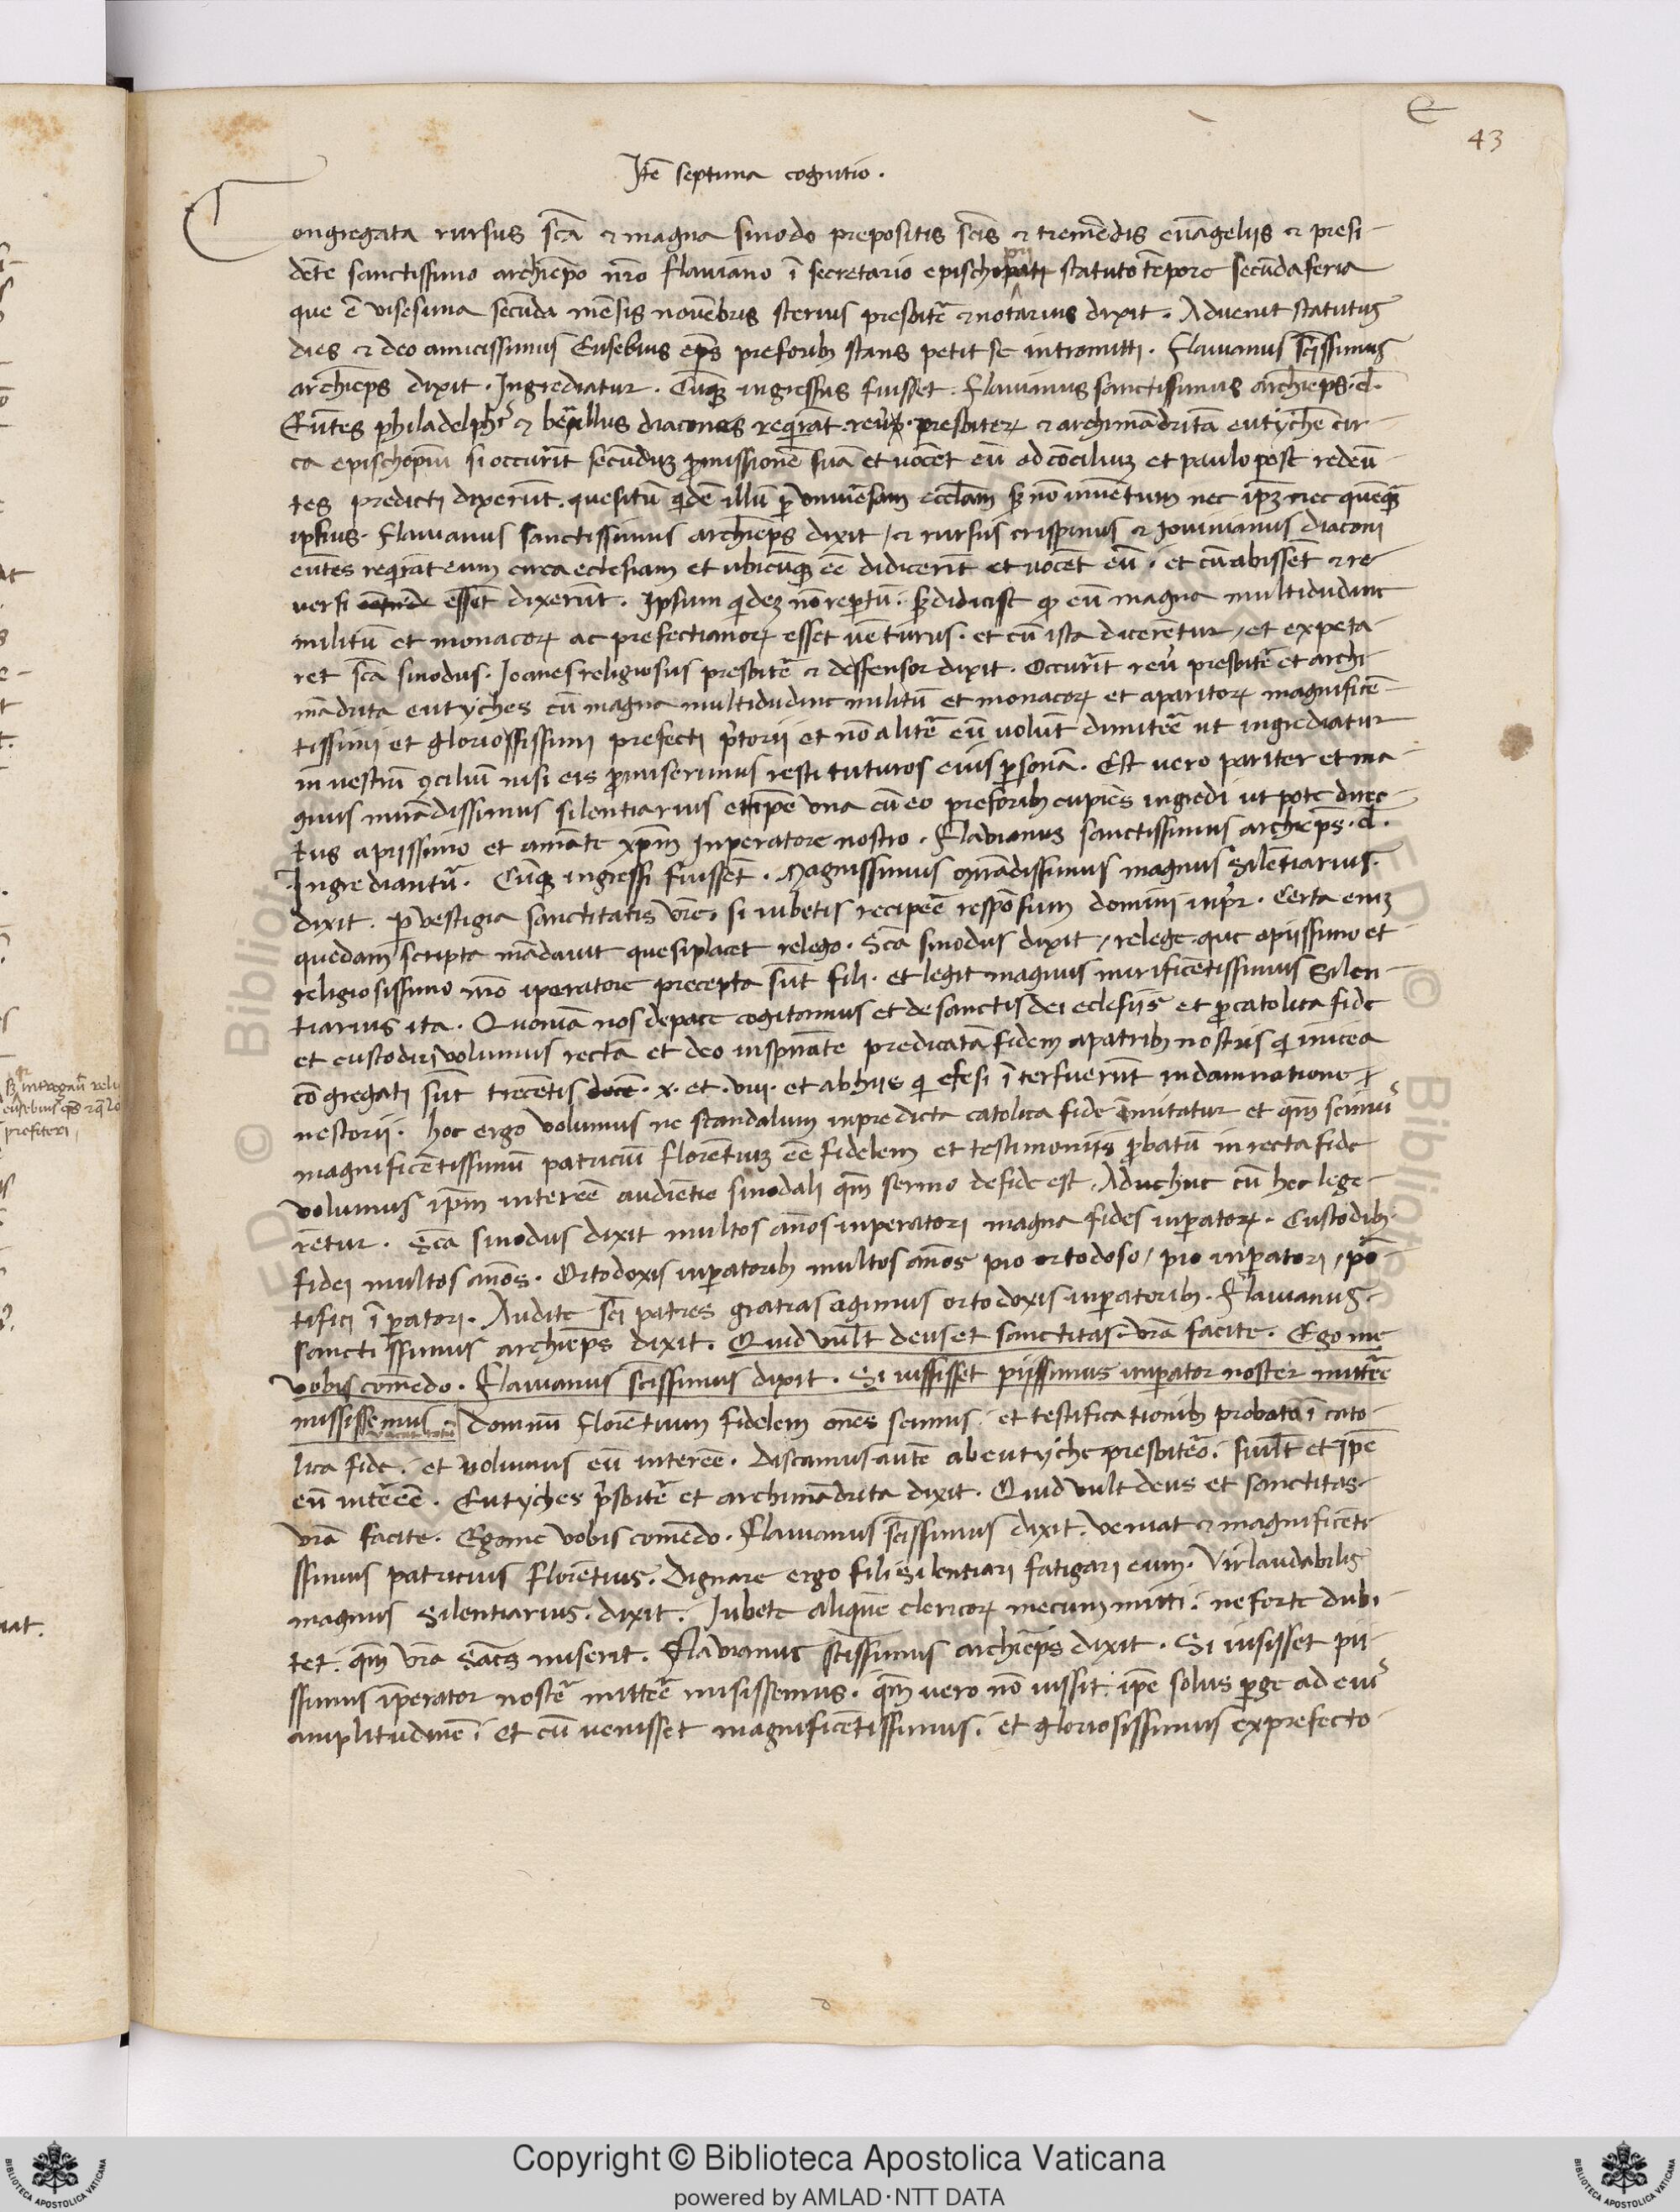 43
Itē septima cognitio.
Congregata rursus sc̄a & magna sinodo prepositis sc̄is & tremēdis euāgeliis & presi-
dēte sanctissimo archiep̄o nr̄o flauiano ī secretario epischopati pii statuto tēpore secūda feria
que ē uisesima secūda mēsis nouēbris sterius presbitē & notarius dixit. Aduenit statutus
dies & deo amicissimus Eusebius ep̄s preforib stans petit se intromitti. Flauianus sc̄issimus
archiep̄s dixit. Ingrediatur. Cūq ingressus fuisset. Flauianus sanctissimus archiep̄s. d.
Eūtes philadelph' & berillus diacones reqirāt reū. presbiteꝝ & archimādritā eutychē cir-
ca epischopiū si occurāt secūduꝫ p̄missionē suā et uocēt eū ad cōciliuꝫ et paulo post redeū-
tes predicti dixerūt. quesitū qidē illū p̄ uniuersam ecclam sꝫ nō inuētum nec ip̄ꝫ nec quēq̄
ipsius. Flauianus sanctissimus archiep̄s dixit / & rursus crispinus & Iouinianus diaconi
eūtes reqirāt eum circa eclesiam et ubicūq eē didicerīt et uocēt eū. et cū abissēt & re-
uersi essēt dixerūt. Ipsum qideꝫ nō reptū. sꝫ didicisse q eū magna multidudine
militū et monacoꝝ ac prefectianoꝝ esset uēturus. et cū ista dicerētur / et expeta-
ret sc̄a sinodus. Ioanes religiosus presbitē & deffensor dixit. Occurīt reū presbitē et archi-
mādrita eutyches cū magna multidudine militū et monacoꝝ et aparitoꝝ magnificē-
tissimi et gloriossissimi prefecti p̄torii et nō alitē eū uolūt dimitē ut ingrediatur
in uestrū ꝯciliū nisi eis p̄miserimus restituturos eius p̄sonā. Est uero pariter et ma-
gnus mirādissimus silentiarius et ip̄e una cū eo preforib cupiēs ingredi ut pote direc-
tus a piissimo et amāte xp̄m Inperatore nostro. Flauianus sanctissimus archiep̄s. d.
Ingrediantū. Cūq ingressi fuissēt. Magnissimus mirādissimus magnus Silētiarius.
dixit. p̄ vestigia sanctitatis vr̄e. si iubetis recipē respōsum domini inp̄r. Certa eniꝫ
quedam scripta mādauit que si placet relego. Sc̄a sinodus dixit / relege que a piissimo et
religiosissimo nr̄o iperatore precepta sūt fili. et legit magnus mirificētissimus Silen-
tiarius ita. Quoniā nos de pace cogitamus et de sanctis dei eclesiis et p̄ catolica fide
et custodiri volumus rectā et deo inspirāte predicatā fidem a patrib nostris q i nicea
cōgregati sūt trecētis . x. et. viii. et ab hiis q efesi ī terfuerūt in damnatione
nestorii. hoc ergo volumus ne scandalum in predicta catolica fide īmitatur et qm̄ scimu'
magnificētissimū patriciū florētiuꝫ eē fidelem et testimoniis p̄batū in recta fide
volumus ip̄m intereē audiētie sinodali qm̄ sermo de fide est. Aduchuc cū hec lege-
rētur. Sc̄a sinodus dixit multos anos inperatori magna fides inperatoꝝ. Custodib
fidei multos anōs. Ortodoxis inperatorib multos anōs pio ortodoso / pio inperatori / pō-
tifici īperatori. Audite sc̄i patres gratias agimus ortodoxis inperatorib. Flauianus
sanctissimus archiep̄s dixit. Quid vult deus et sanctitas vr̄a facite. Ego me
vobis comēdo. Flauianus sc̄issimus dixit. Si iussisset piissimus inperator noster mittēe
missisemus Domnū florētium fidelem omēs scimus. et testificationib probato ī cato-
lica fide. et uolumus eū intereē. discamus autē ab eutyche presbitēo. si uult et ip̄e
eū intēeē. Eutyches p̄sbitē et archimādrita dixit. Quid vult deus et sanctitas
vr̄a facite. Ego me vobis comēdo. Flauianus sc̄issimus dixit. veniat & magnificēti-
ssimus patricius florētius. Dignare ergo fili silentiari fatigari eum. Vir laudabilis
magnus Silentiarius. dixit. Iubete aliquē clericoꝝ mecum mitti. ne forte dubi-
tet. qm̄ vr̄a sāctꝫ miserit. Flavianus sc̄issimus archiep̄s dixit. Si iusisset pii-
ssimus īperator nostē mittē misissemus. qm̄ uero nō iussit. ip̄e solus p̄ge ad eiu'
amplitudinē. et cū uenisset magnificētissimus. et gloriosissimus ex prefecto
Copyright © Biblioteca Apostolica Vaticana
powered by AMLAD·NTT DATA